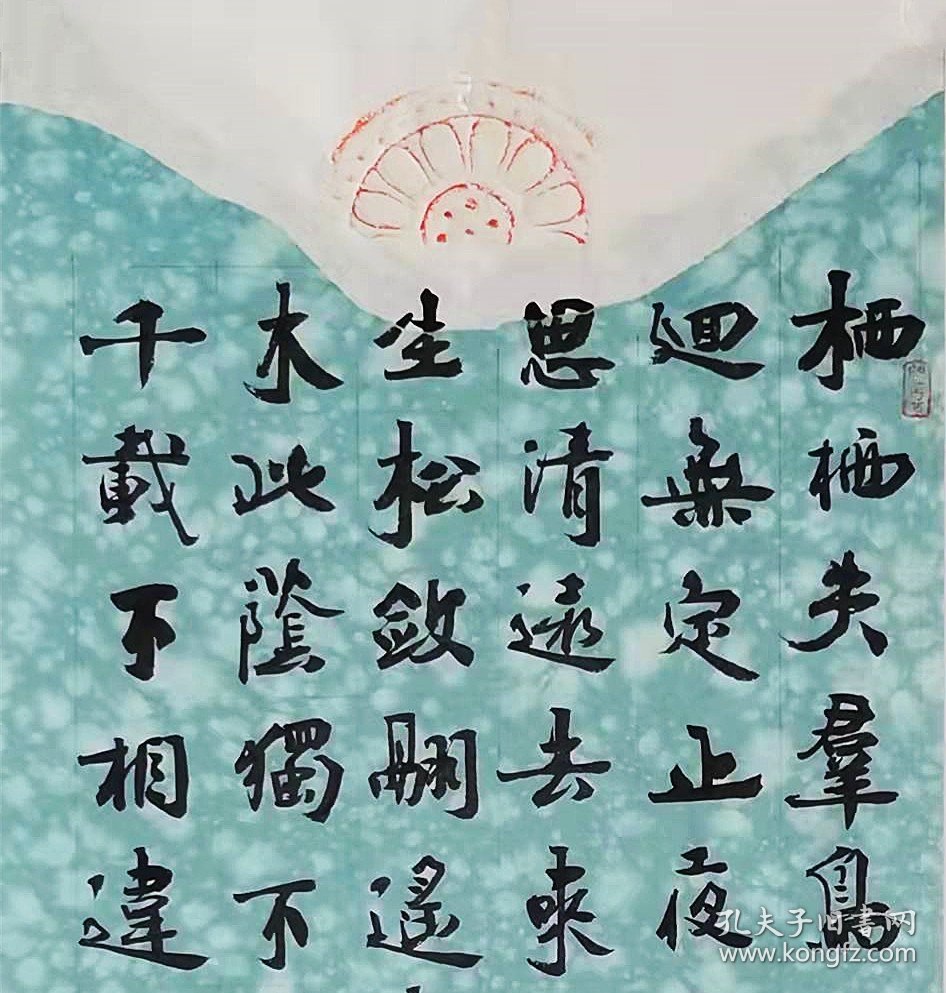 栖栖失羣鳥
迴無定止夜
思清遠去來
生松斂翮遙
木此蔭獨不
千載不相違
孔夫子旧书网
www.kongfz.com